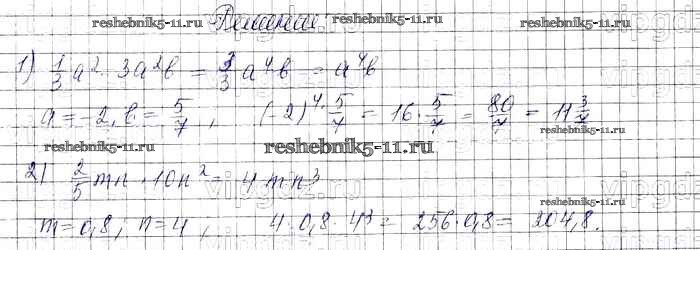 Решение:
reshebnik5-11.ru
reshebnik5-11.ru
reshebnik5-11.ru
1) 1/3 a² · 3a²b = 3/3 a⁴b = a⁴b
a = -2, b = 5/7, (-2)⁴ · 5/7 = 16 · 5/7 = 80/7 = 11 3/7
reshebnik5-11.ru
reshebnik5-11.ru
2) 2/5 mn · 10n² = 4mn³
reshebnik5-11.ru
m = 0,8; n = 4, 4 · 0,8 · 4³ = 256 · 0,8 = 204,8.
reshebnik5-11.ru